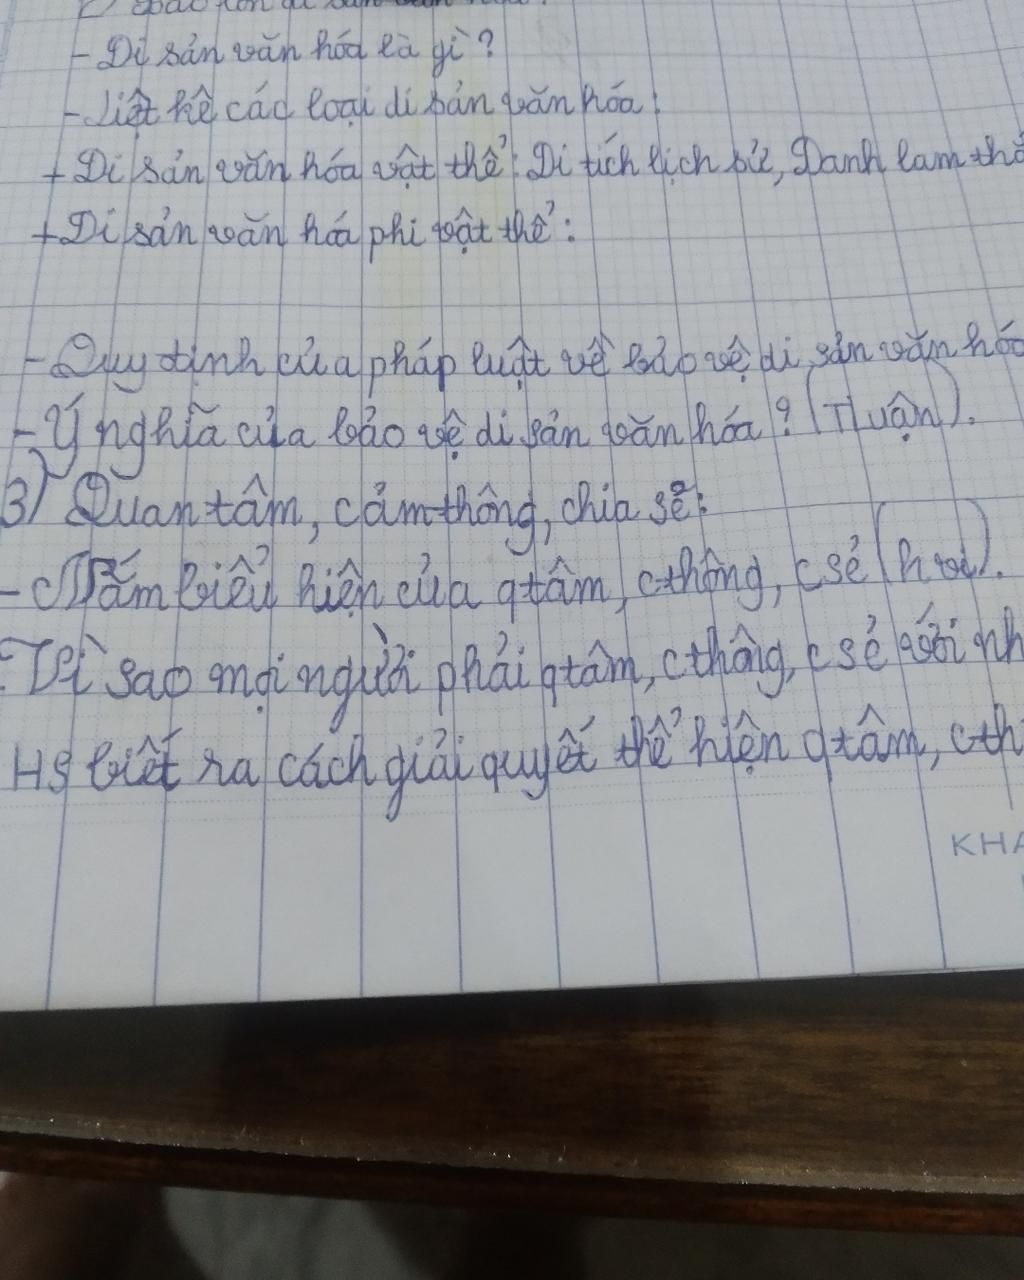 - Di sản văn hóa là gì?
- Liệt kê các loại di sản văn hóa:
+ Di sản văn hóa vật thể: Di tích lịch sử, Danh lam
+ Di sản văn hóa phi vật thể:
- Quy định của pháp luật về bảo vệ di sản văn hóa
- Ý nghĩa của bảo vệ di sản văn hóa? (Tluận).
3) Quan tâm, cảm thông, chia sẻ:
- Nắm biểu hiện của qtâm, cthông, csẻ
- Vì sao mọi người phải qtâm, cthông, csẻ với
HS biết ra cách giải quyết thể hiện qtâm,